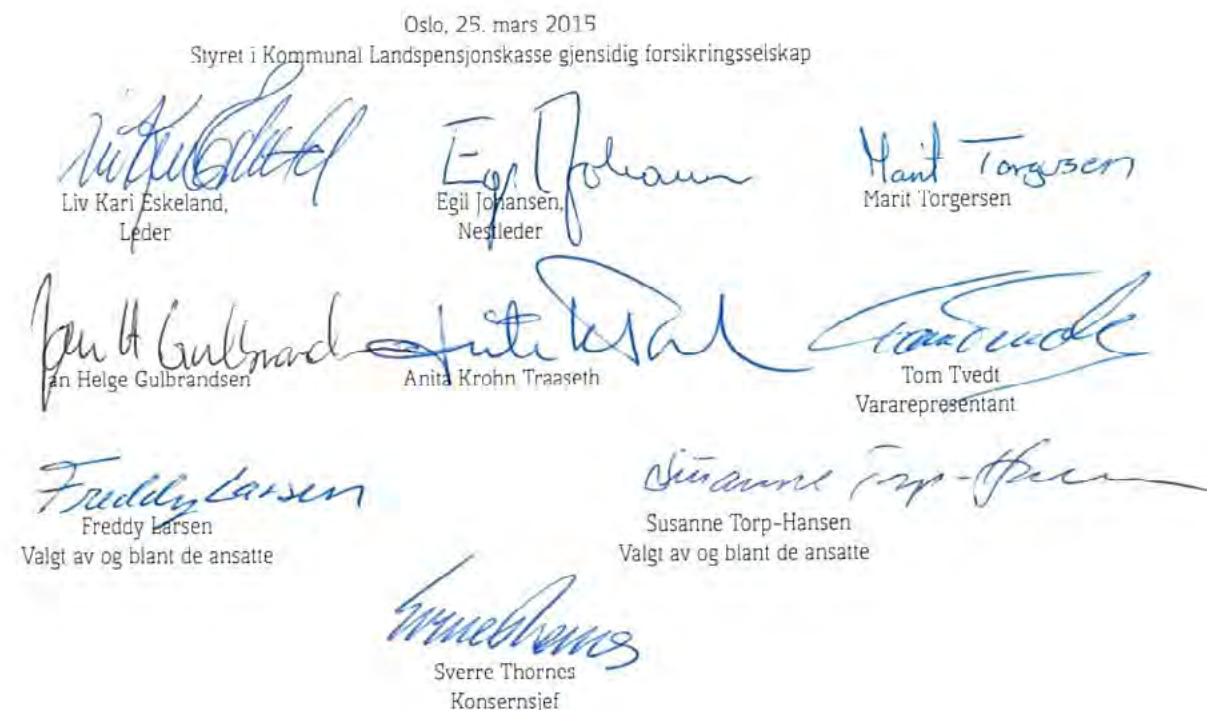 Oslo, 25. mars 2015
Styret i Kommunal Landspensjonskasse gjensidig forsikringsselskap
Liv Kari Eskeland,
Leder
Egil Johansen,
Nestleder
Marit Torgersen
Marit Torgersen
Jan Helge Gulbrandsen
Anita Krohn Traaseth
Tom Tvedt
Vararepresentant
Freddy Larsen
Freddy Larsen
Valgt av og blant de ansatte
Susanne Torp-Hansen
Valgt av og blant de ansatte
Sverre Thornes
Konsernsjef